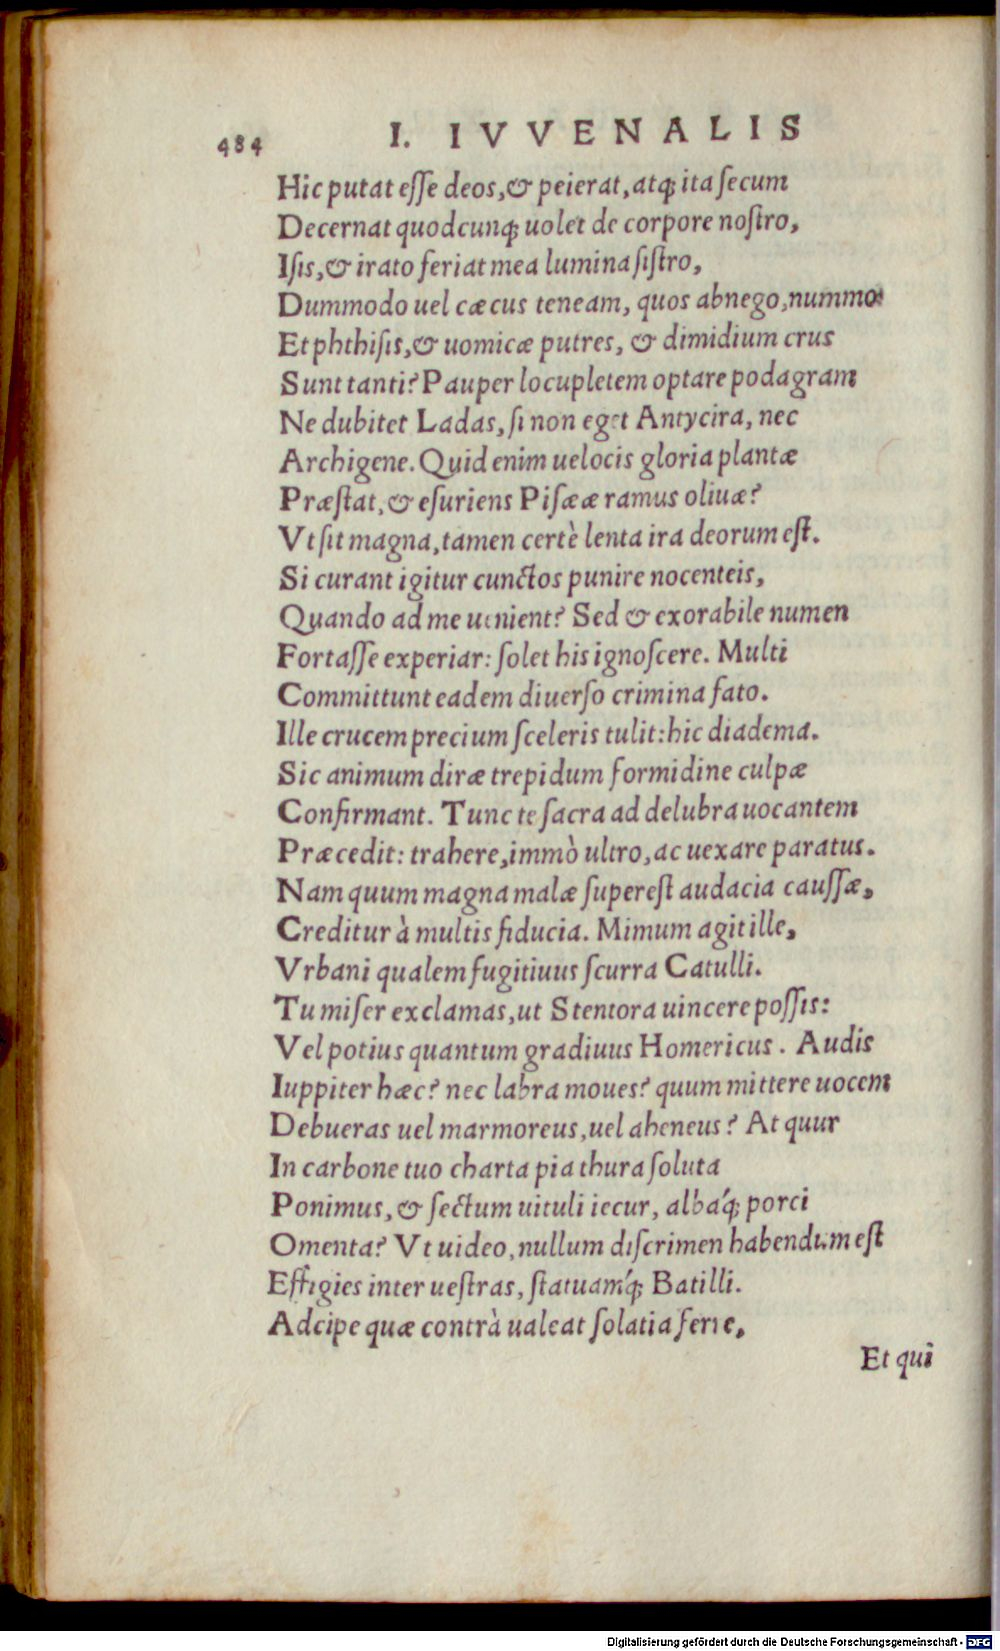 484 I. IVVENALIS
Hic putat eſſe deos, & peierat, atq; ita ſecum
Decernat quodcunq; uolet de corpore noſtro,
Iſis, & irato feriat mea lumina ſiſtro,
Dummodo uel cæcus teneam, quos abnego, nummos
Et phthiſis, & uomicæ putres, & dimidium crus
Sunt tanti? Pauper locupletem optare podagram
Ne dubitet Ladas, ſi non eget Antycira, nec
Archigene. Quid enim uelocis gloria plantæ
Præſtat, & eſuriens Piſææ ramus oliuæ?
Vt ſit magna, tamen certè lenta ira deorum eſt.
Si curant igitur cunctos punire nocenteis,
Quando ad me uenient? Sed & exorabile numen
Fortaſſe experiar: ſolet his ignoſcere. Multi
Committunt eadem diuerſo crimina fato.
Ille crucem precium ſceleris tulit: hic diadema.
Sic animum diræ trepidum formidine culpæ
Confirmant. Tunc te ſacra ad delubra uocantem
Præcedit: trahere, immò ultro, ac uexare paratus.
Nam quum magna malæ ſupereſt audacia cauſſæ,
Creditur à multis fiducia. Mimum agit ille,
Vrbani qualem fugitiuus ſcurra Catulli.
Tu miſer exclamas, ut Stentora uincere poſſis:
Vel potius quantum gradiuus Homericus. Audis
Iuppiter hæc? nec labra moues? quum mittere uocem
Debueras uel marmoreus, uel aheneus? At quur
In carbone tuo charta pia thura ſoluta
Ponimus, & ſectum uituli iecur, albáq; porci
Omenta? Vt uideo, nullum diſcrimen habendum eſt
Effigies inter ueſtras, ſtatuamq́; Batilli.
Adcipe quæ contrà ualeat ſolatia ferre,
Et qui
Digitalisierung gefördert durch die Deutsche Forschungsgemeinschaft - DFG